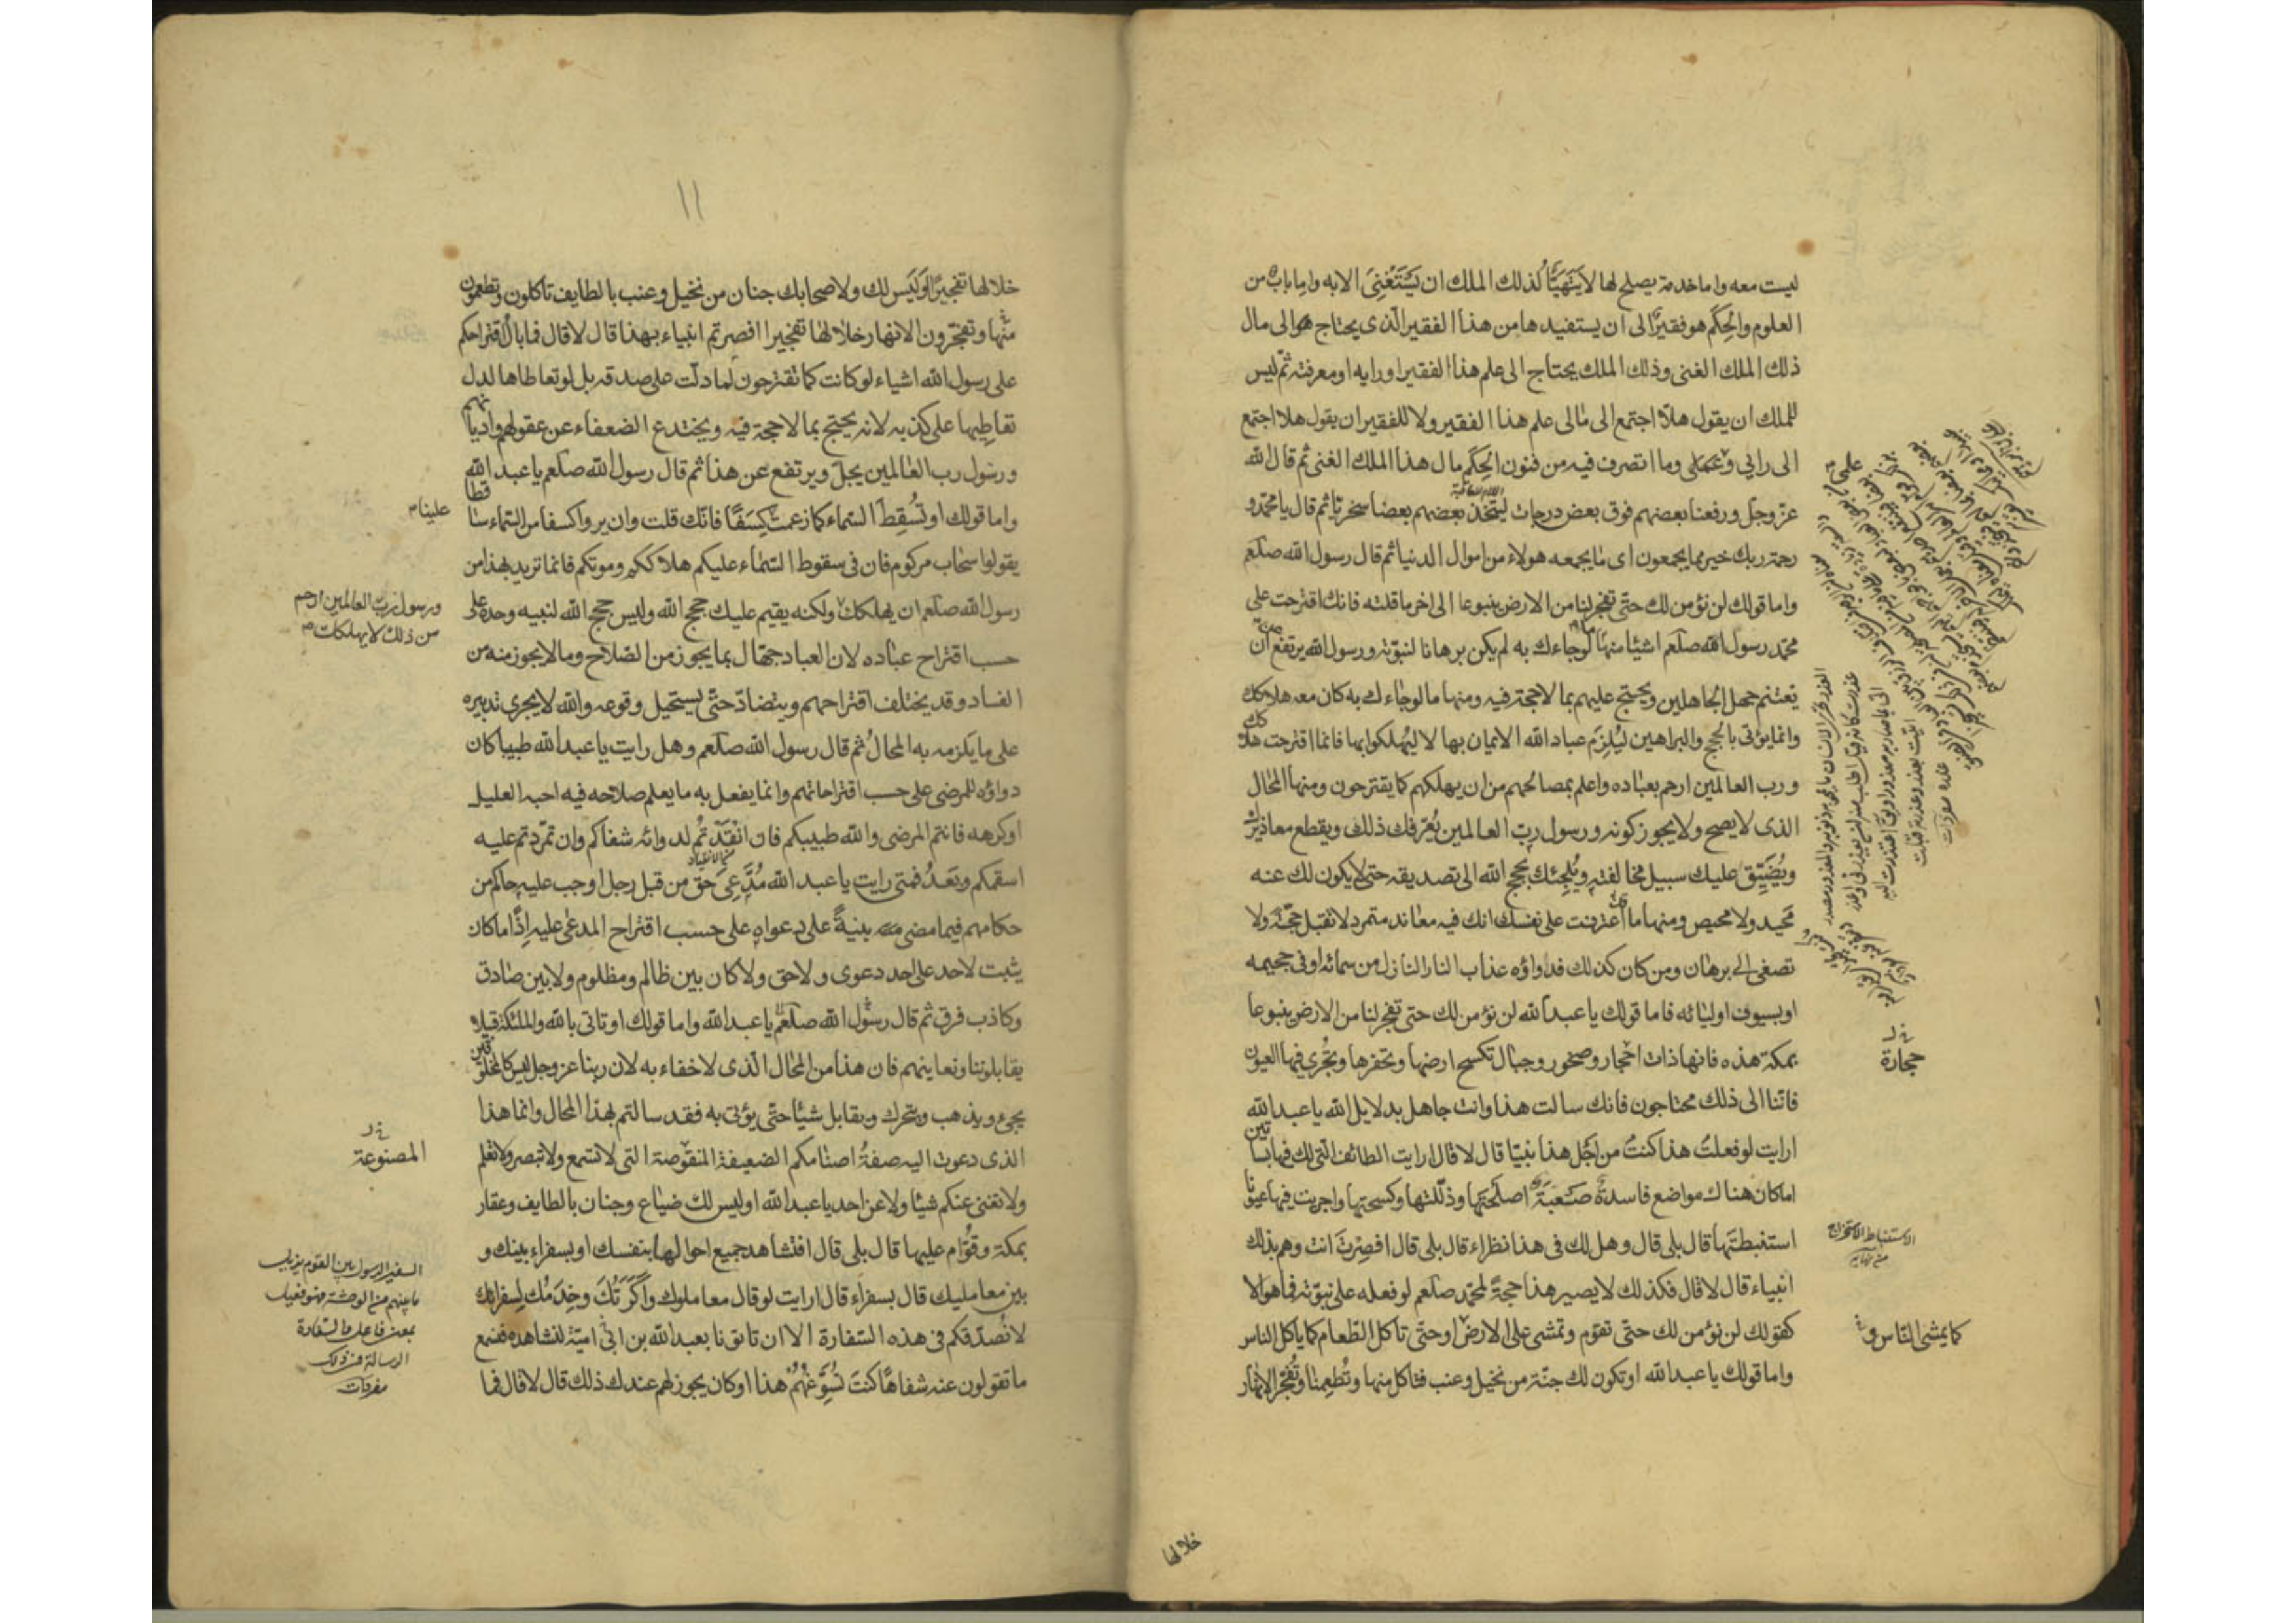 ليست معه واما خدمة يصلح لها لا يتهيأ لذلك الملك ان يستغنى الا به واما باب من
العلوم والحكم هو فقير الى ان يستفيدها من هذا الفقير الذى يحتاج هو الى مال
ذلك الملك الغنى وذلك الملك يحتاج الى علم هذا الفقير او رايه او معرفته ثم ليس
للملك ان يقول هلا اجتمع الى مالى علم هذا الفقير ولا للفقير ان يقول هلا اجتمع
الى رايى وعملى وما اتصرف فيه من فنون الحكم مال هذا الملك الغنى ثم قال الله
عز وجل ورفعنا بعضهم فوق بعض درجات ليتخذ بعضهم بعضا سخريا ثم قال يا محمد و
رحمة ربك خير مما يجمعون اى ما يجمعه هولاء من اموال الدنيا ثم قال رسول الله صلعم
واما قولك لن نؤمن لك حتى تفجر لنا من الارض ينبوعا الى اخر ما قلته فانك اقترحت على
محمد رسول الله صلعم اشيئا منها ما لو جاءك به لم يكن برهانا لنبوته ورسول الله يرتفع عن ان
يغتنم جهل الجاهلين ويحتج عليهم بما لا حجة فيه ومنها ما لو جاءك به كان معه هلاكك
وانما يؤتى بالحجج والبراهين ليلزم عباد الله الايمان بها لا ليهلكوا بها فانما اقترحت هلاكك
ورب العالمين ارحم بعباده واعلم بمصالحهم من ان يهلكهم كما يقترحون ومنها المحال
الذى لا يصح ولا يجوز كونه ورسول رب العالمين يعرفك ذلك ويقطع معاذيرك
ويضيق عليك سبيل مخالفته ويلجئك بحجج الله الى تصديقه حتى لا يكون لك عنه
محيد ولا محيص ومنها ما اعترفت على نفسك انك فيه معاند متمرد لا تقبل حجة ولا
تصغى الى برهان ومن كان كذلك فدواؤه عذاب النار النازل من سمائه او فى جحيمه
او بسيوف اوليائه فاما قولك يا عبد الله لن نؤمن لك حتى تفجر لنا من الارض ينبوعا
بمكة هذه فانها ذات احجار وصخور وجبال تكسح ارضها وتحفرها وتجرى فيها العيون
فاننا الى ذلك محتاجون فانك سالت هذا وانت جاهل بدلايل الله يا عبد الله
ارايت لو فعلت هذا كنت من اجل هذا نبيا قال لا قال ارايت الطائف التى لك فيها بساتين
اما كان هناك مواضع فاسدة صعبة اصلحتها وذللتها وكسحتها واجريت فيها عيونا
استنبطتها قال بلى قال وهل لك فى هذا نظراء قال بلى قال افصرت انت وهم بذلك
انبياء قال لا قال فكذلك لا يصير هذا حجة لمحمد صلعم لو فعله على نبوته فما هو الا
كقولك لن نؤمن لك حتى تقوم وتمشى على الارض او حتى تاكل الطعام كما ياكل الناس
واما قولك يا عبد الله او تكون لك جنة من نخيل وعنب فتاكل منها وتطعمنا وتفجر الانهار
حجارة
الاستنباط الاستخراج
كما يمشى الناس و
خلالها
۱۱
خلالها تفجيرا او ليس لك ولاصحابك جنان من نخيل وعنب بالطايف تاكلون وتطعمون
منها وتفجرون الانهار خلالها تفجيرا افصرتم انبياء بهذا قال لا قال فما بال اقتراحكم
على رسول الله اشياء لو كانت كما تقترحون لما دلت على صدقه بل لو تعاطاها لدل
تعاطيها على كذبه لانه يحتج بما لا حجة فيه ويختدع الضعفاء عن عقولهم واديانهم
ورسول رب العالمين يجل ويرتفع عن هذا ثم قال رسول الله صلعم يا عبد الله
واما قولك او تسقط السماء كما زعمت كسفا فانك قلت وان يروا كسفا من السماء ساقطا
يقولوا سحاب مركوم فان فى سقوط السماء عليكم هلاككم وموتكم فانما تريد بهذا من
رسول الله صلعم ان يهلكك ولكنه يقيم عليك حجج الله وليس حجج الله لنبيه وحده على
حسب اقتراح عباده لان العباد جهال بما يجوز من الصلاح وما لا يجوز منه من
الفساد وقد يختلف اقتراحهم ويتضاد حتى يستحيل وقوعه والله لا يجرى تدبيره
على ما يلزمه به المحال ثم قال رسول الله صلعم وهل رايت يا عبد الله طبيبا كان
دواؤه للمرضى على حسب اقتراحاتهم وانما يفعل به ما يعلم صلاحه فيه احبه العليل
او كرهه فانتم المرضى والله طبيبكم فان انقدتم لدوائه شفاكم وان تمردتم عليه
اسقمكم وبعد فمتى رايت يا عبد الله مدعى حق من قبل رجل اوجب عليه حاكم من
حكامهم فيما مضى بينة على دعواه على حسب اقتراح المدعى عليه اذا ما كان
يثبت لاحد على احد دعوى ولا حق ولا كان بين ظالم ومظلوم ولا بين صادق
وكاذب فرق ثم قال رسول الله صلعم يا عبد الله واما قولك او تاتى بالله والملئكة قبيلا
يقابلوننا ونعاينهم فان هذا من المحال الذى لا خفاء به لان ربنا عز وجل ليس كالمخلوقين
يجىء ويذهب ويتحرك ويقابل شيئا حتى يؤتى به فقد سالتم بهذا المحال وانما هذا
الذى دعوت اليه صفة اصنامكم الضعيفة المنقوصة التى لا تسمع ولا تبصر ولا تعلم
ولا تغنى عنكم شيئا ولا عن احد يا عبد الله اوليس لك ضياع وجنان بالطايف وعقار
بمكة وقوام عليها قال بلى قال افتشاهد جميع احوالها بنفسك او بسفراء بينك و
بين معامليك قال بسفراء قال ارايت لو قال معاملوك واكرتك وخدمك لسفرائك
لا نصدقكم فى هذه السفارة الا ان تاتونا بعبد الله بن ابى امية لنشاهده فنسمع
ما تقولون عنه شفاها كنت تسوغهم هذا او كان يجوز لهم عندك ذلك قال لا قال فما
علينا
ورسول رب العالمين ارحم
من ذلك لا يهلكك
المصنوعة
السفير الرسول بين القوم يزيل
ما بينهم من الوحشة فهو فعيل
بمعنى فاعل والسفارة
الرسالة
مفردات